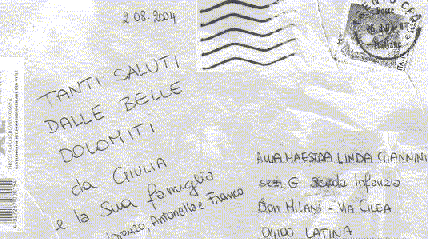 2 08.2004
TANTI SALUTI
DALLE BELLE
DOLOMITI
da GIULIA
e la sua famiglia
Antonella e Franco
ALLA MAESTRA LINDA GIANNINI
sez. G Scuola infanzia
Don Milani - VIA CILEA
04100 LATINA